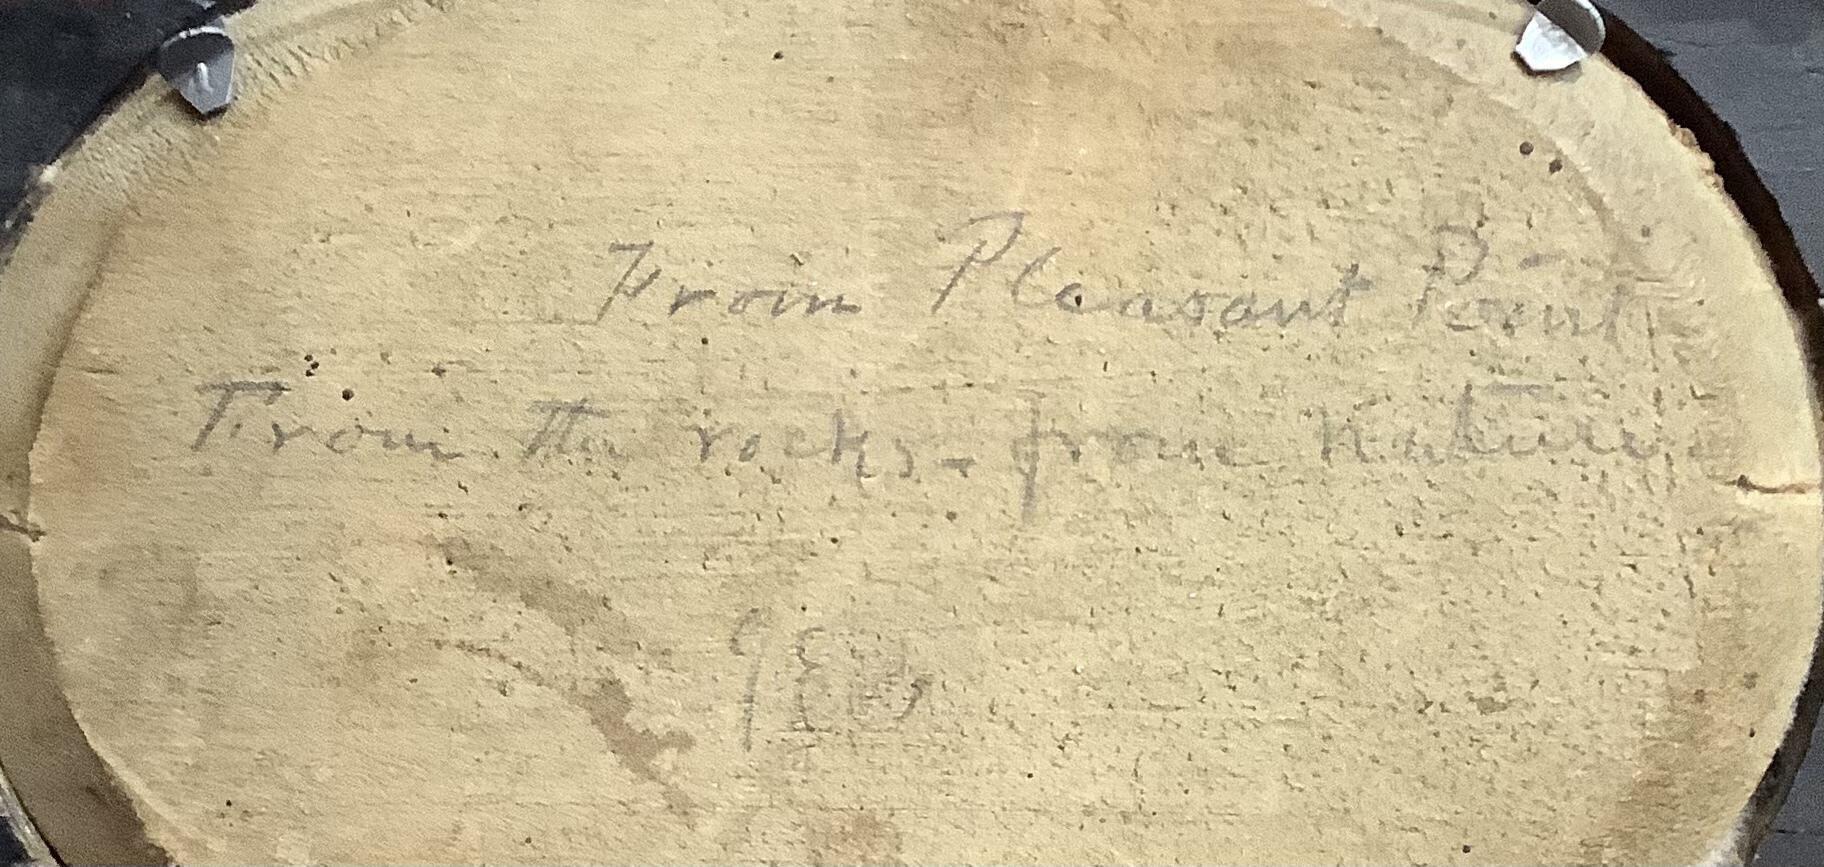 From Pleasant Point
From the rocks - from Nature